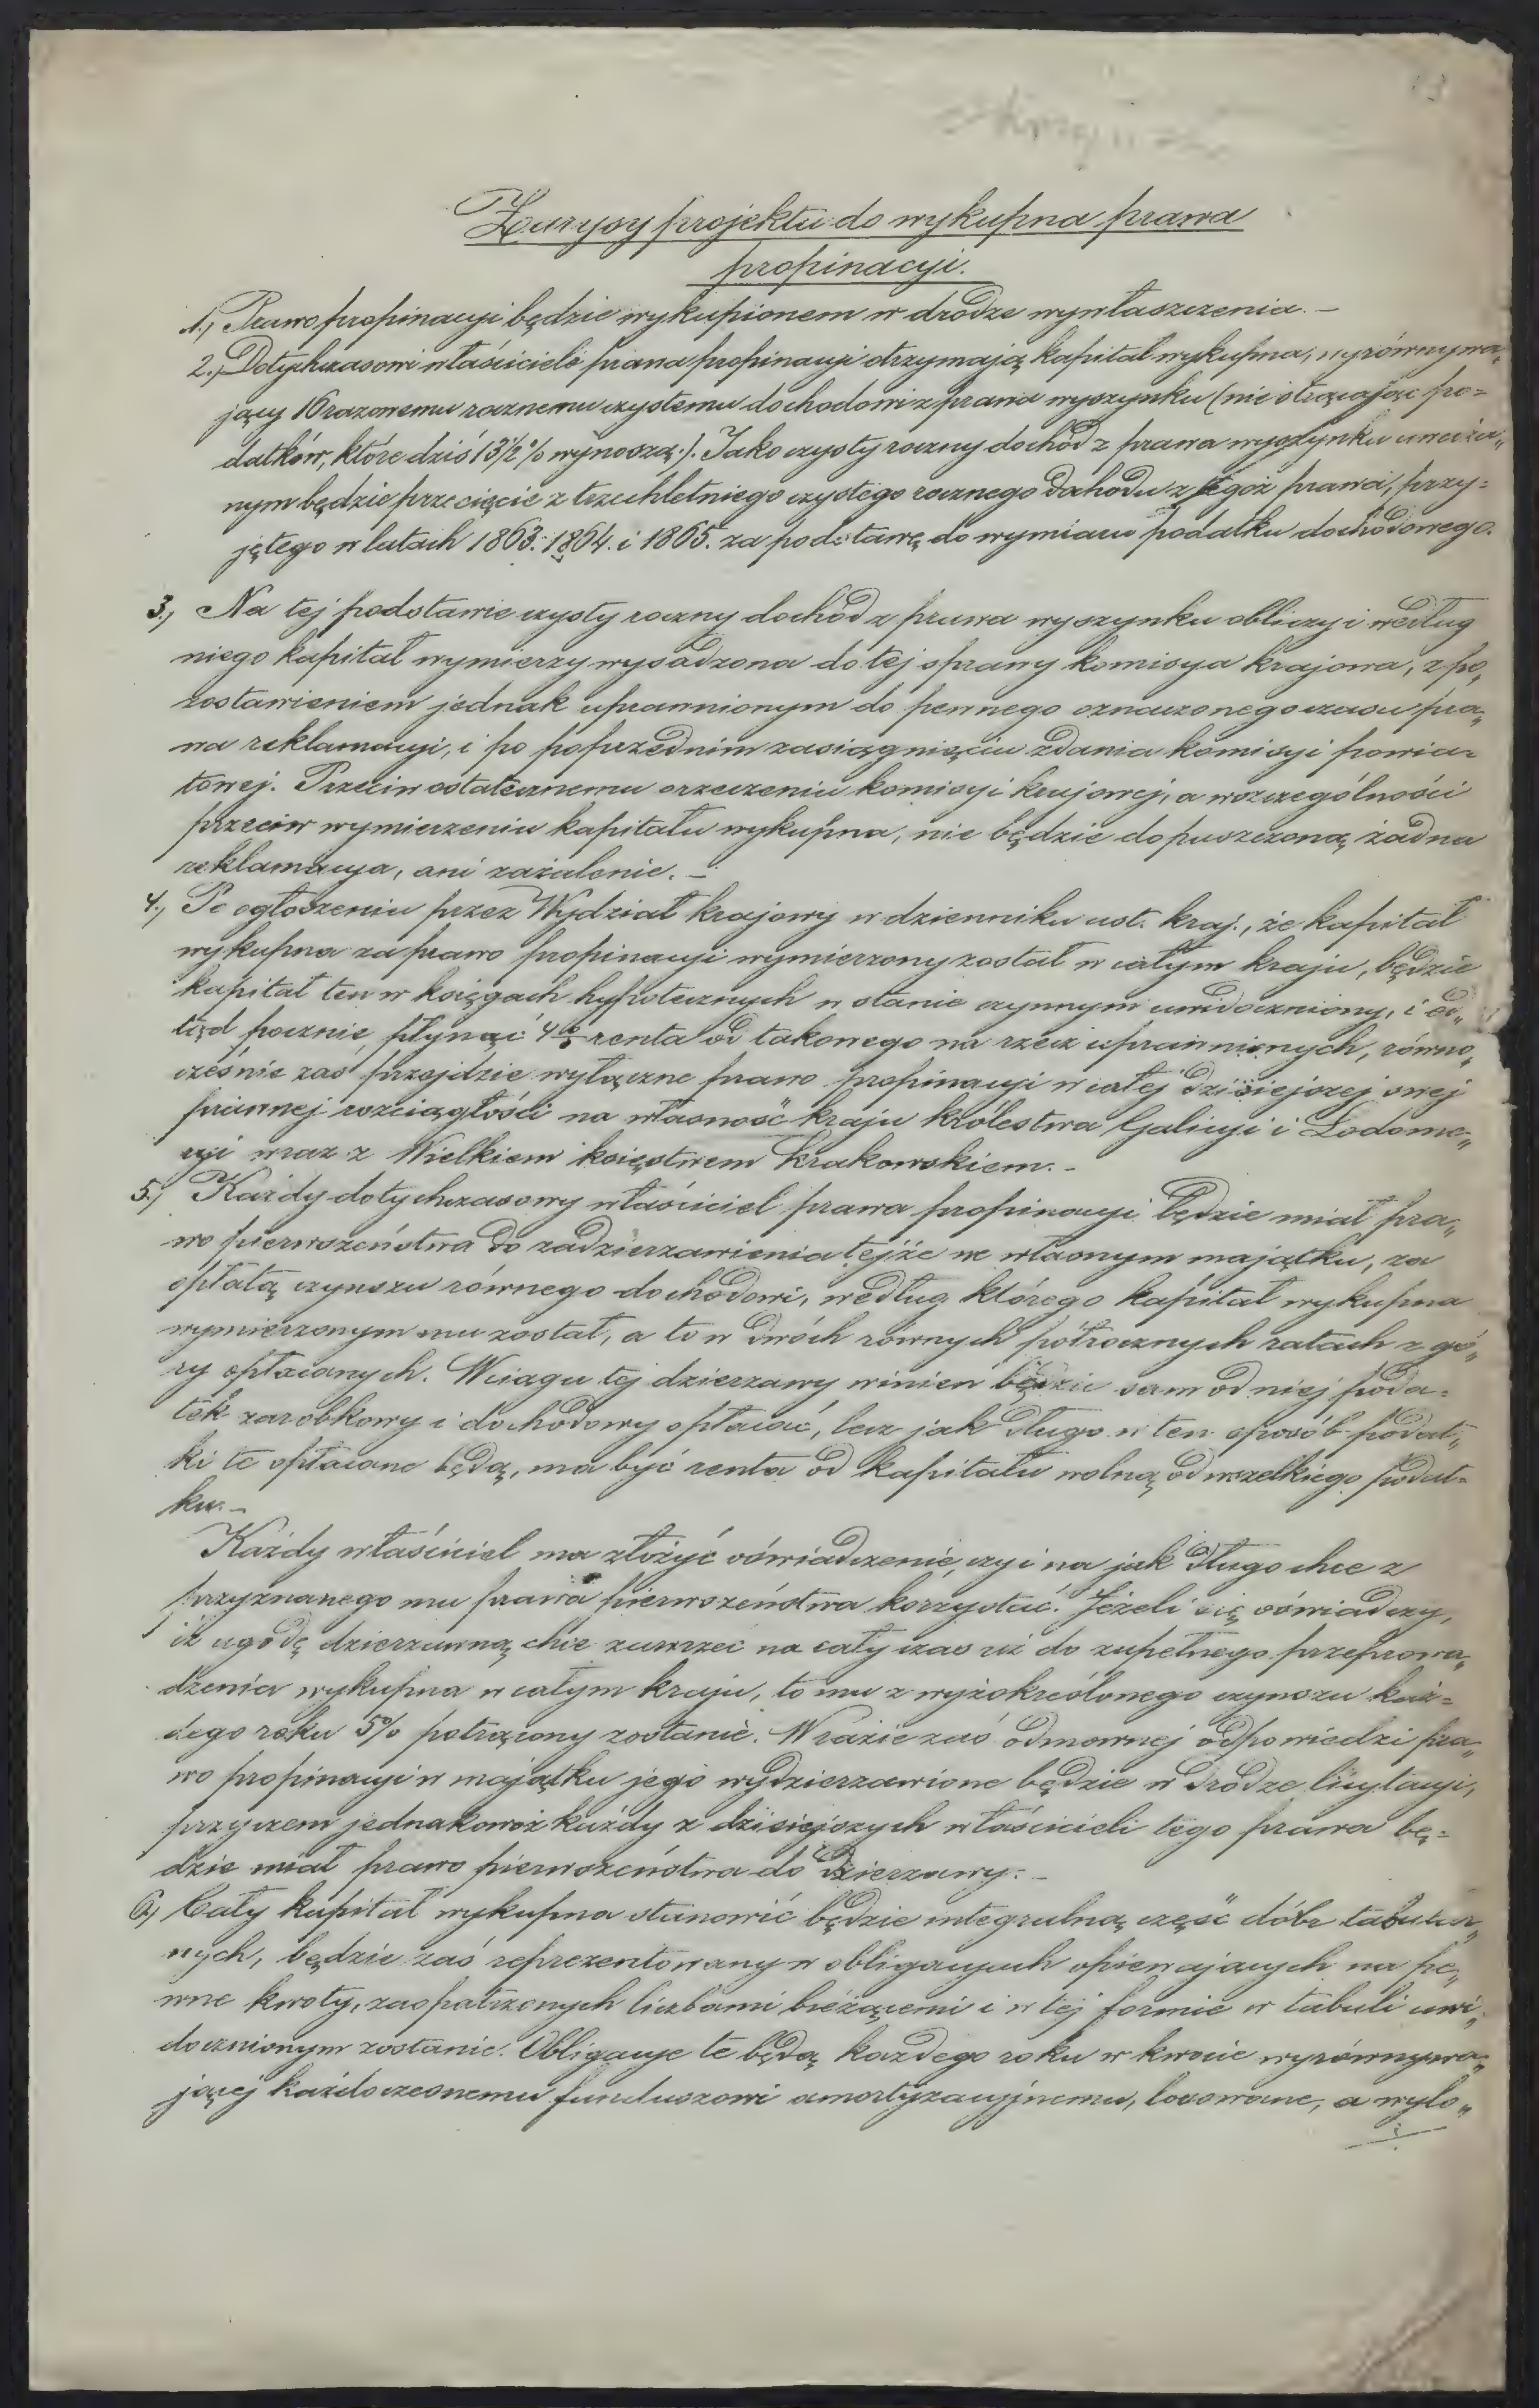 Zarysy projektu do wykupna prawa
propinacyi.
1.) Prawo propinacyi będzie wykupionem w drodze wywłaszczenia. –
2.) Dotychczasowi właściciele prawa propinacyi otrzymają kapitał wykupna, wyrównywa„
jący 16razowemu rocznemu czystemu dochodowi z prawa wyszynku (nie strącając po=
datków, które dziś 13½% wynoszą.). Jako czysty roczny dochód z prawa wyszynku uważa„
nym będzie przecięcie z trzechletniego czystego rocznego dochodu z tegoż prawa, przy=
jętego w latach 1863. 1864. i 1865. za podstawę do wymiaru podatku dochodowego.
3.) Na tej podstawie czysty roczny dochód z prawa wyszynku obliczy i według
niego kapitał wymierzy wysadzona do tej sprawy komisya krajowa, z po„
zostawieniem jednak uprawnionym do pewnego oznaczonego czasu pra„
wa reklamacyi, i po poprzednim zasiągnięciu zdania komisyi powia=
towej. Przeciw ostatecznemu orzeczeniu komisyi krajowej, a wszczególności
przeciw wymierzeniu kapitału wykupna, nie będzie dopuszczoną żadna
reklamacya, ani zażalenie. –
4.) Po ogłoszeniu przez Wydział krajowy w dzienniku ust. kraj., że kapitał
wykupna za prawo propinacyi wymierzony został w całym kraju, będzie
kapitał ten w księgach hypotecznych w stanie czynnym uwidoczniony, i od„
tąd pocznie płynąć 4% renta od takowego na rzecz uprawnionych, równo„
cześnie zaś przejdzie wyłączne prawo propinacyi w całej dzisiejszej swej
prawnej rozciągłości na własność kraju królestwa Galicyi i Lodome„
ryi wraz z Wielkiem księstwem Krakowskiem. –
5.) Każdy dotychczasowy właściciel prawa propinacyi będzie miał pra„
wo pierwszeństwa do zadzierzawienia tejże we własnym majątku, za
opłatą czynszu równego dochodowi, według którego kapitał wykupna
wymierzonym mu został, a to w dwóch równych półrocznych ratach z gó„
ry opłacanych. W ciągu tej dzierzawy winien będzie sam od niej poda=
tek zarobkowy i dochodowy opłacać, lecz jak długo w ten sposób podat„
ki te opłacane będą, ma być renta od kapitału wolną od wszelkiego podat=
ku. –
Każdy właściciel ma złożyć oświadczenie, czy i na jak długo chce z
przyznanego mu prawa pierwszeństwa korzystać. Jeżeli się oświadczy,
iż ugodę dzierzawną chce zawrzeć na cały czas aż do zupełnego przeprowa„
dzenia wykupna w całym kraju, to mu z wyżokreślonego czynszu każ=
dego roku 5% potrącony zostanie. W razie zaś odmownej odpowiedzi pra„
wo propinacyi w majątku jego wydzierzawione będzie w drodze licytacyi,
przyczem jednakowoż każdy z dzisiejszych właścicieli tego prawa bę=
dzie miał prawo pierwszeństwa do dzierzawy. –
6.) Cały kapitał wykupna stanowić będzie integralną część dóbr tabular„
nych, będzie zaś reprezentowany w obligacyach opiewających na pe„
wne kwoty, zaopatrzonych liczbami bieżącemi i w tej formie w tabuli uwi„
docznionym zostanie. Obligacye te będą każdego roku w kwocie wyrównywa„
jącej każdoczesnemu funduszowi amortyzacyjnemu, losowane, a wylo„